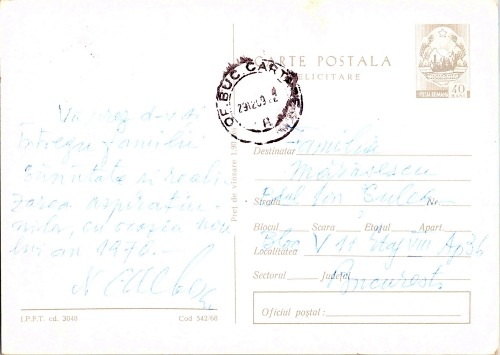 CARTE POSTALA
FELICITARE
40
BANI
OF. BUC. CARTA
Vă urez dvs și
întregii familii
sănătate și reali
zarea aspirațiu
nilor, cu ocazia nou
lui an 1970.
Preț de vînzare 1,90
Destinatar Familia
Mărăsescu
Strada Bdul Ion Șulea
Blocul Scara Etajul Apart.
Localitatea Bloc V 11 Etaj VIII Ap 36
Sectorul Județul
București
Oficiul poștal:
I.P.F.T. cd. 3048
Cod 542/68